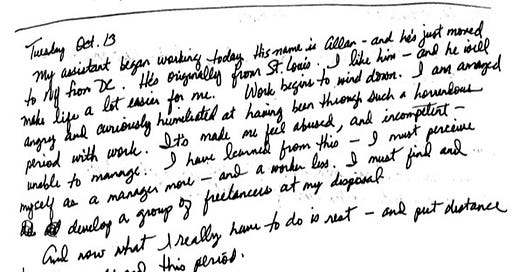 Tuesday Oct. 13
My assistant began working today. His name is Allan - and he's just moved
to NY from DC. He's originally from St. Louis. I like him - and he will
make life a lot easier for me. Work begins to wind down. I am amazed
angry and curiously humiliated at having been through such a horrendous
period with work. It's made me feel abused, and incompetent -
unable to manage. I have learned from this - I must perceive
myself as a manager more - and a worker less. I must find and
develop a group of freelancers at my disposal
And now what I really have to do is rest - and put distance
and this period.